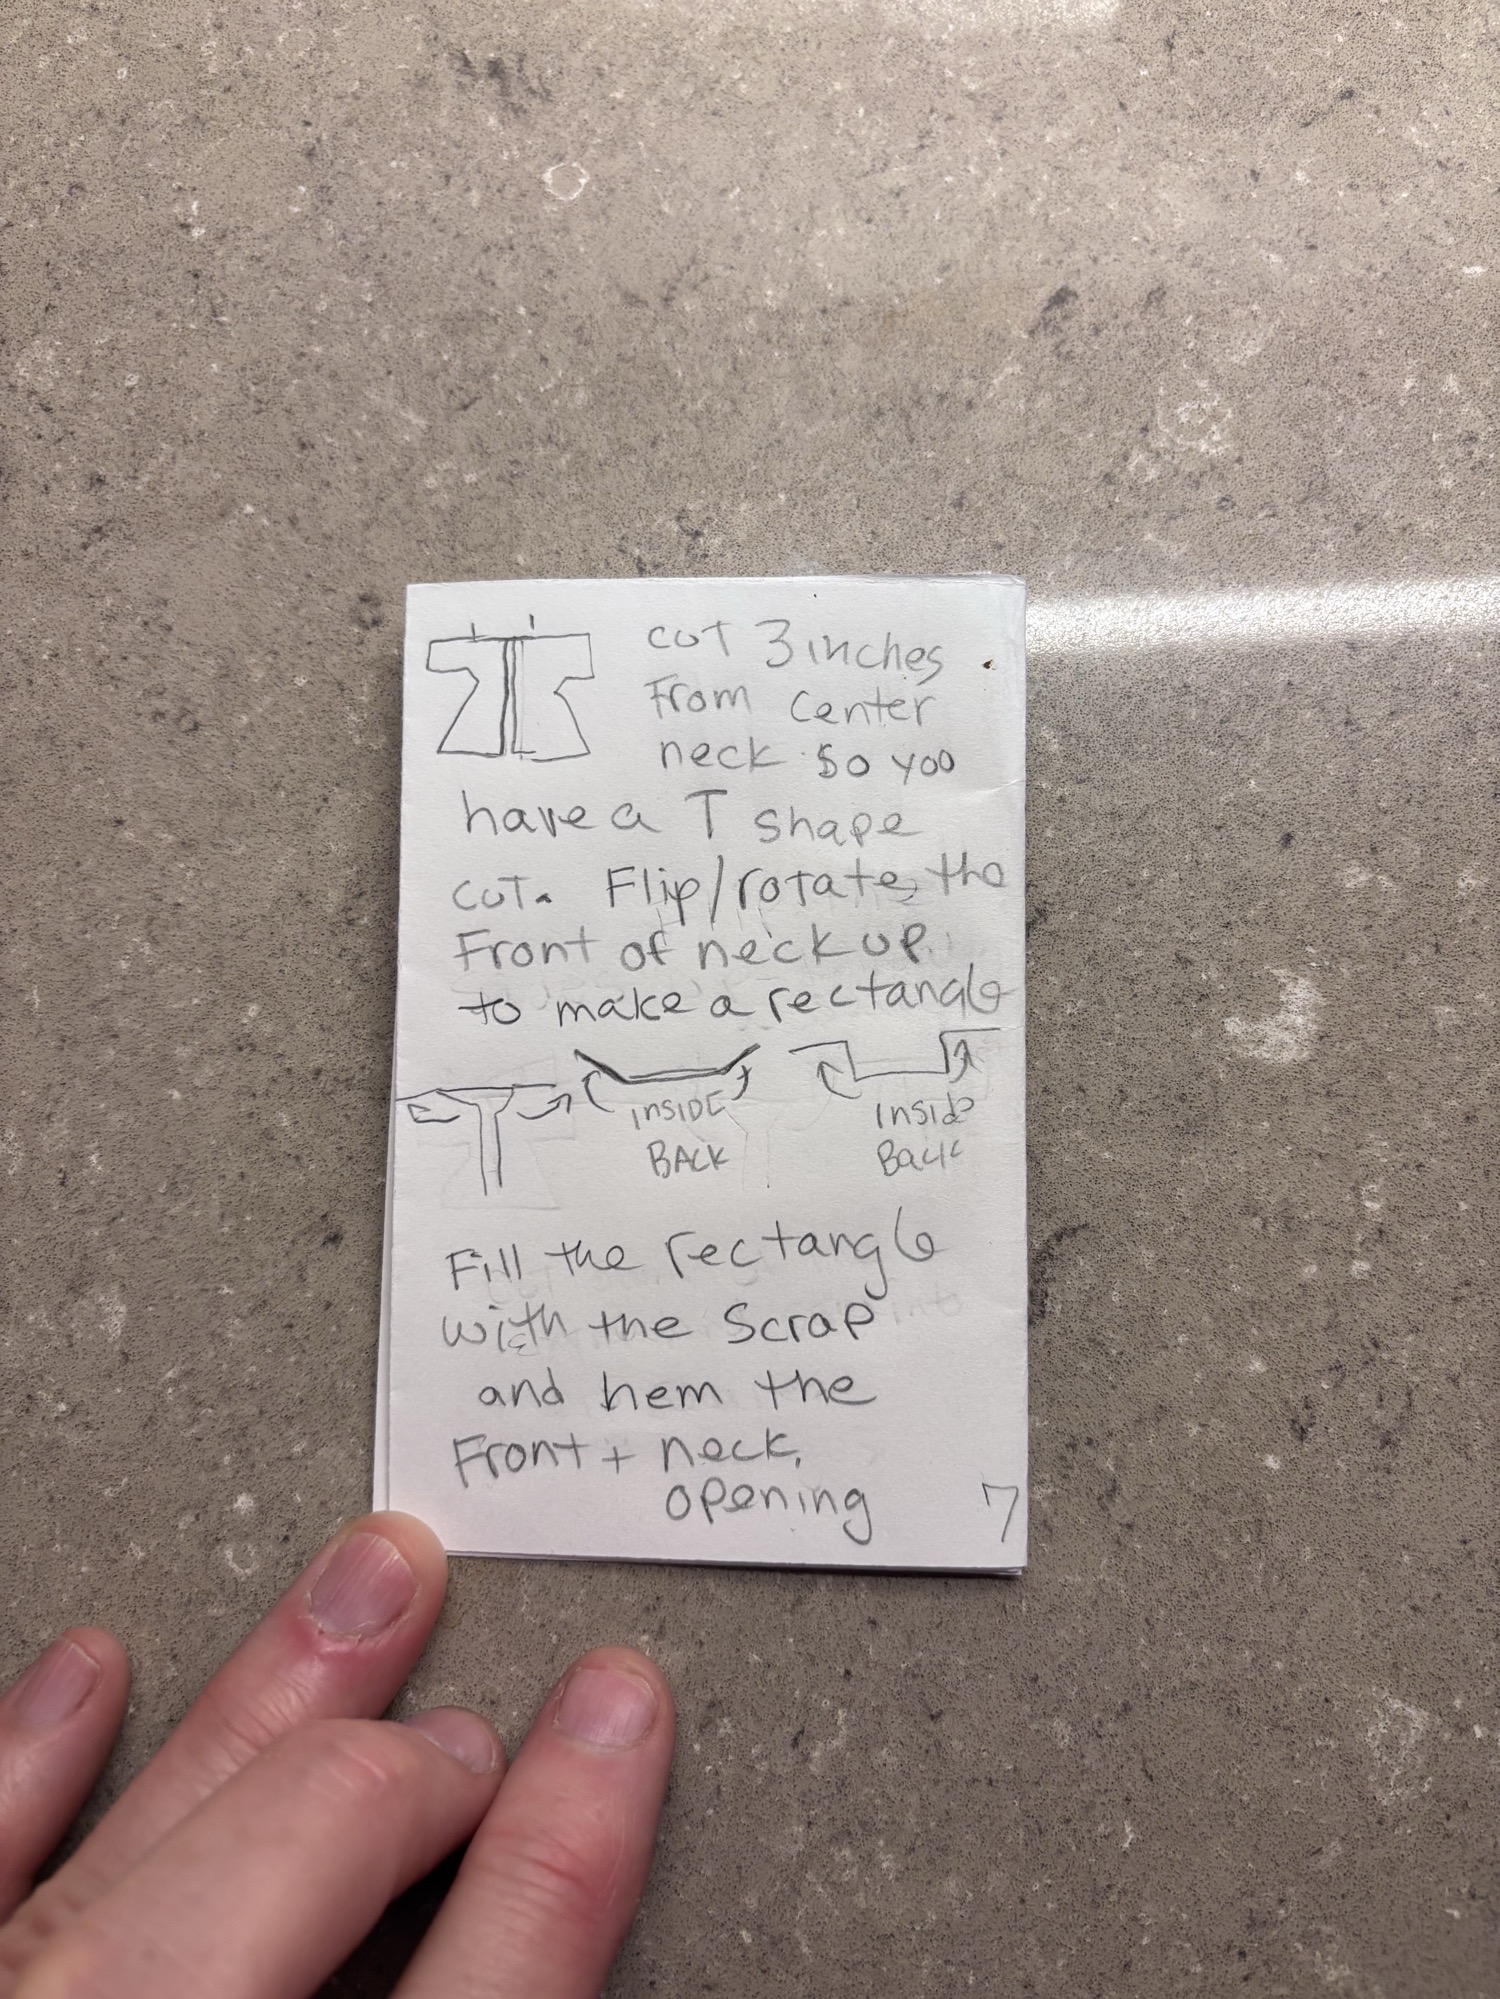 cut 3 inches
From center
neck so you
have a T shape
cut. Flip/rotate, the
Front of neck up
to make a rectangle
INSIDE
BACK
Inside
Back
Fill the rectangle
with the scrap
and hem the
Front + neck,
opening
7